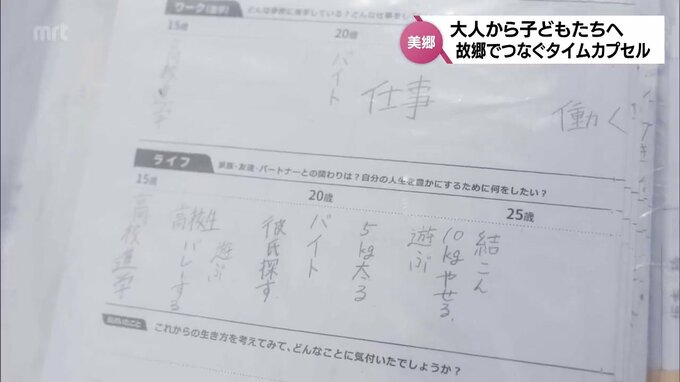 mrt
美郷
大人から子どもたちへ
故郷でつなぐタイムカプセル
15歳
20歳
バイト
仕事
働く
ライフ
家族・友達・パートナーとの関わりは?自分の人生を豊かにするために何をしたい?
15歳
20歳
25歳
高校進学
高校生
遊ぶ
バレーする
彼氏探す
バイト
5kg太る
遊ぶ
10kgやせる
結こん
これからの生き方を考えてみて、どんなことに気付いたでしょうか?